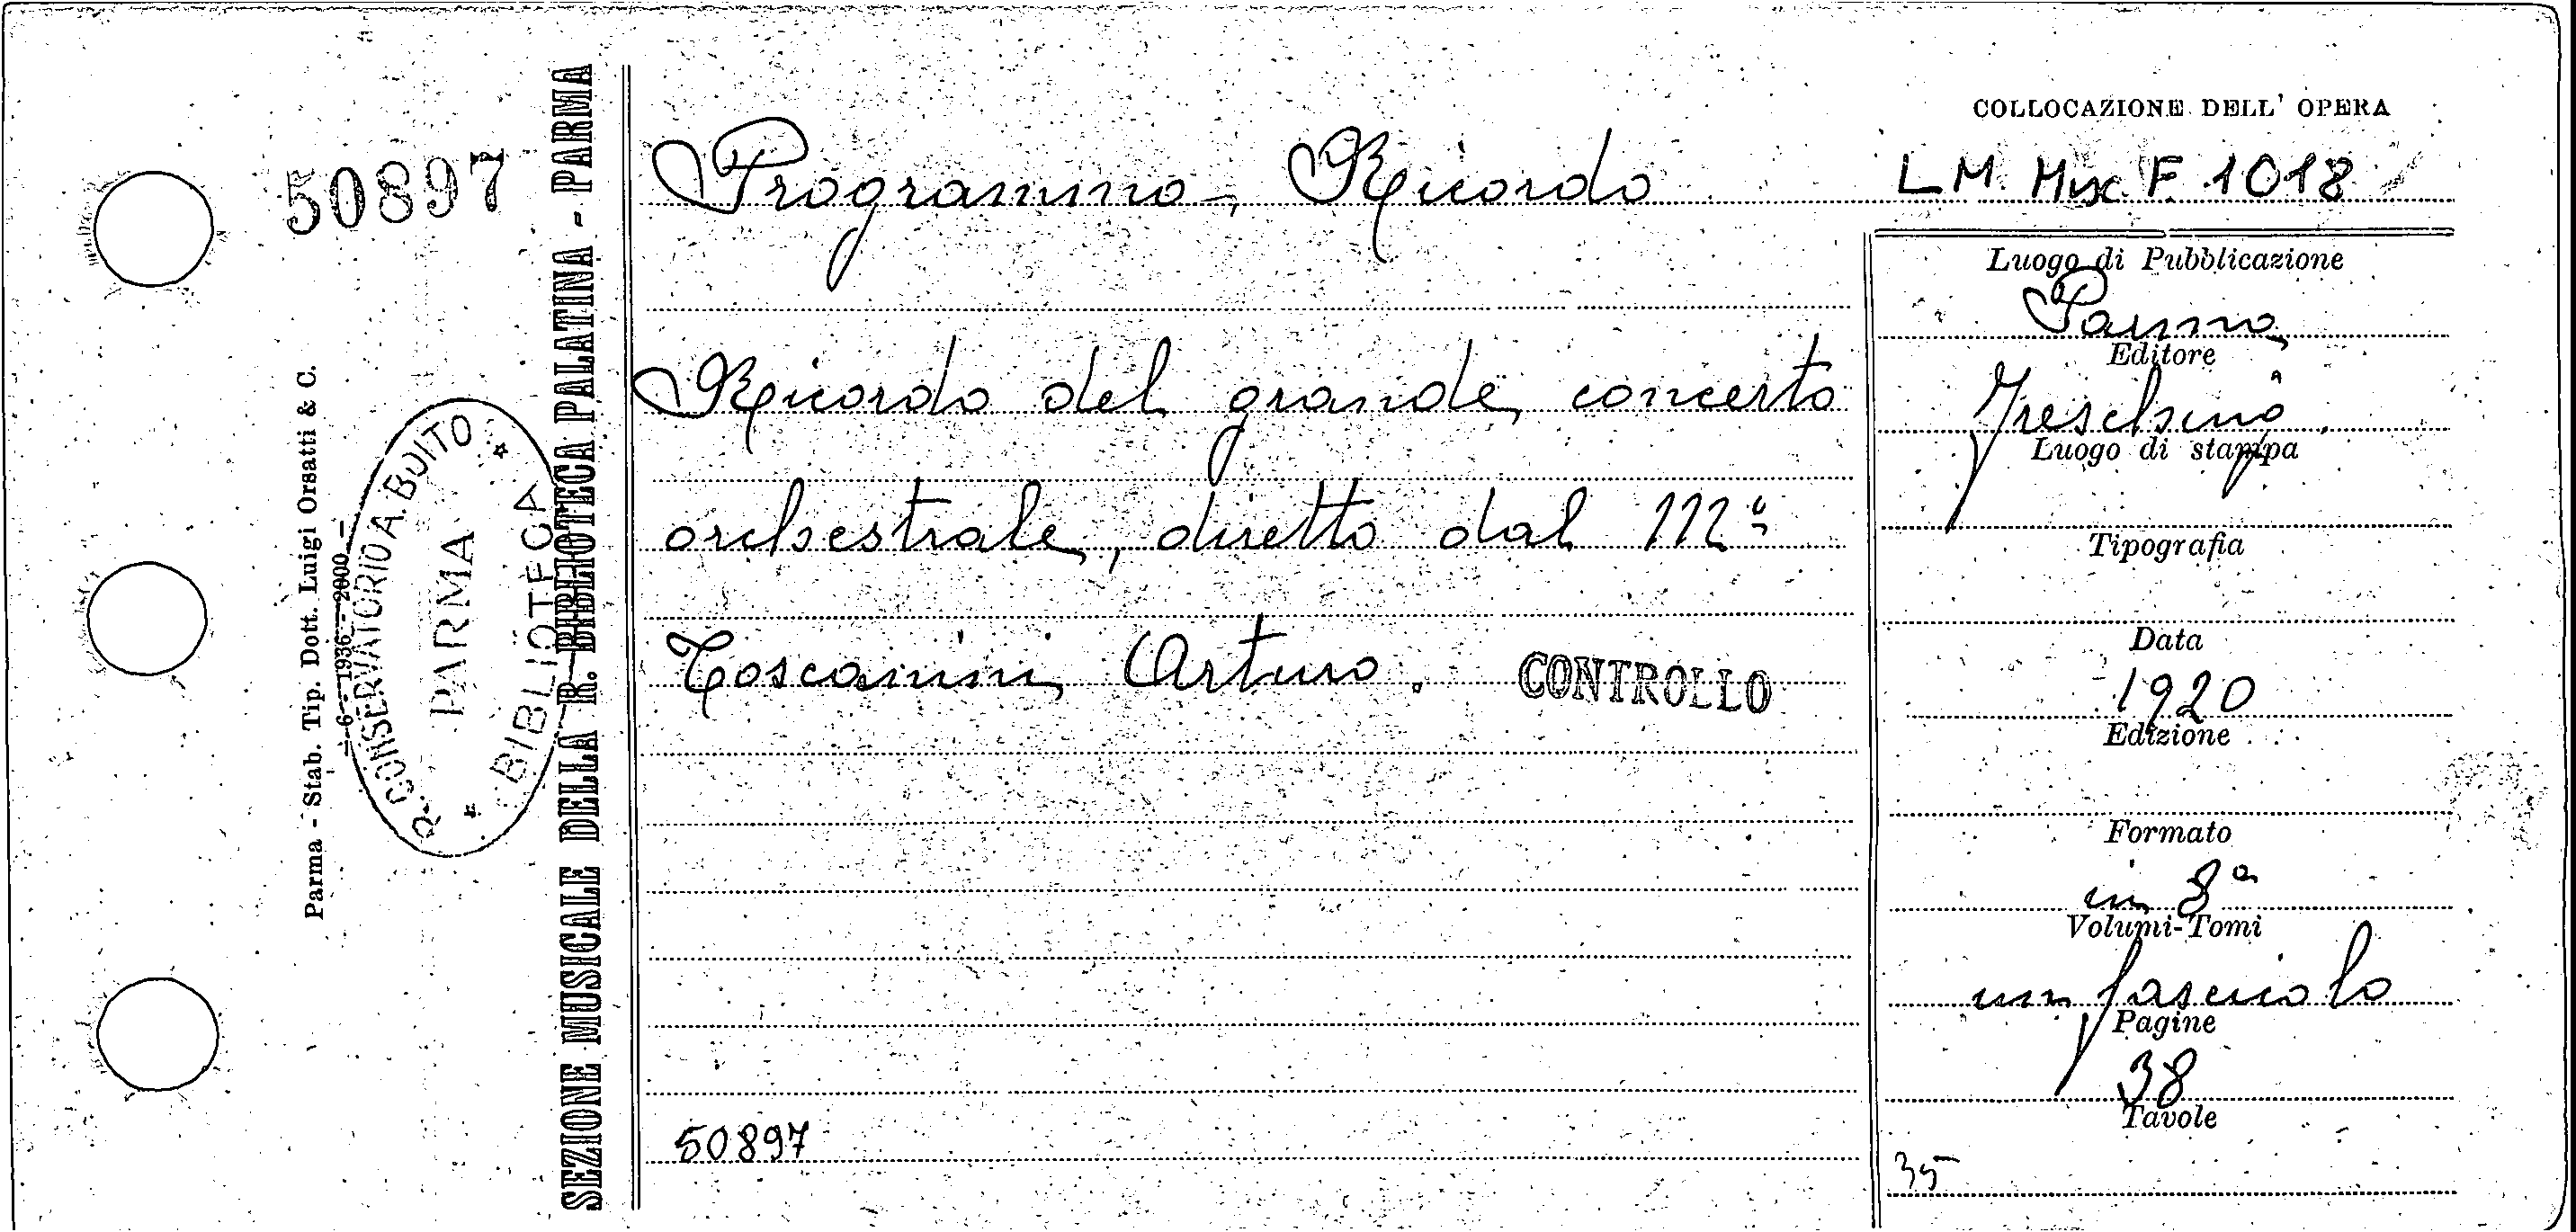 50897
Parma - Stab. Tip. Dott. Luigi Orsatti & C.
- 6 - 1936 - 2000 -
R. CONSERVATORIO A. BOITO
PARMA
* BIBLIOTECA *
SEZIONE MUSICALE DELLA R. BIBLIOTECA PALATINA - PARMA
Programma, Ricordo
Ricordo del grande concerto
orchestrale, diretto dal Mº
Toscanini Arturo.
CONTROLLO
50897
COLLOCAZIONE DELL' OPERA
LM Misc F. 1018
Luogo di Pubblicazione
Parma
Editore
Freschino
Luogo di stampa
Tipografia
Data
1920
Edizione
Formato
in 8º
Volumi-Tomi
un fascicolo
Pagine
38
Tavole
35